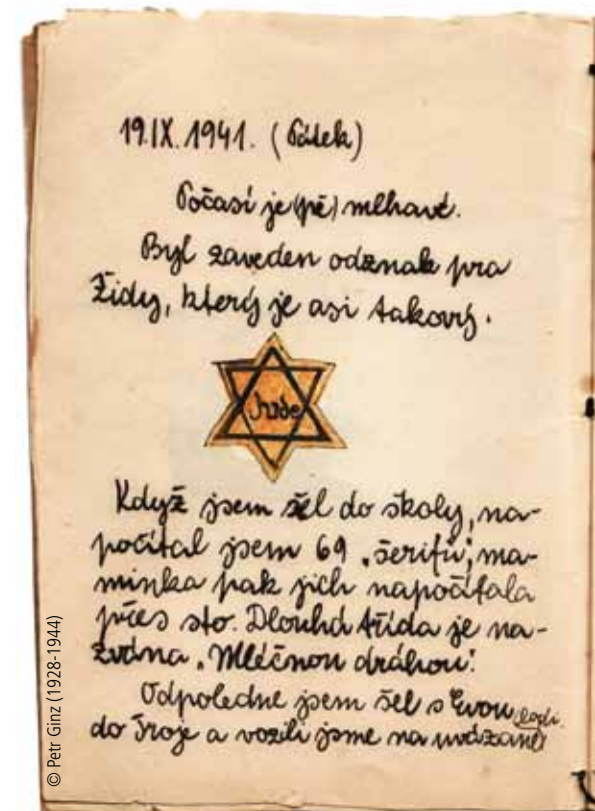 19.IX.1941. (Pátek)
Počasí je (pě) mlhavé.
Byl zaveden odznak pro
Židy, který je asi takový.
Jude
Když jsem šel do školy, na-
počítal jsem 69 „šerifů“, ma-
minka pak jich napočítala
přes sto. Dlouhá třída je na-
zvána „Mléčnou dráhou“.
Odpoledne jsem šel s Evou
do Troje a vozili jsme na uvázané
lodi.
© Petr Ginz (1928-1944)